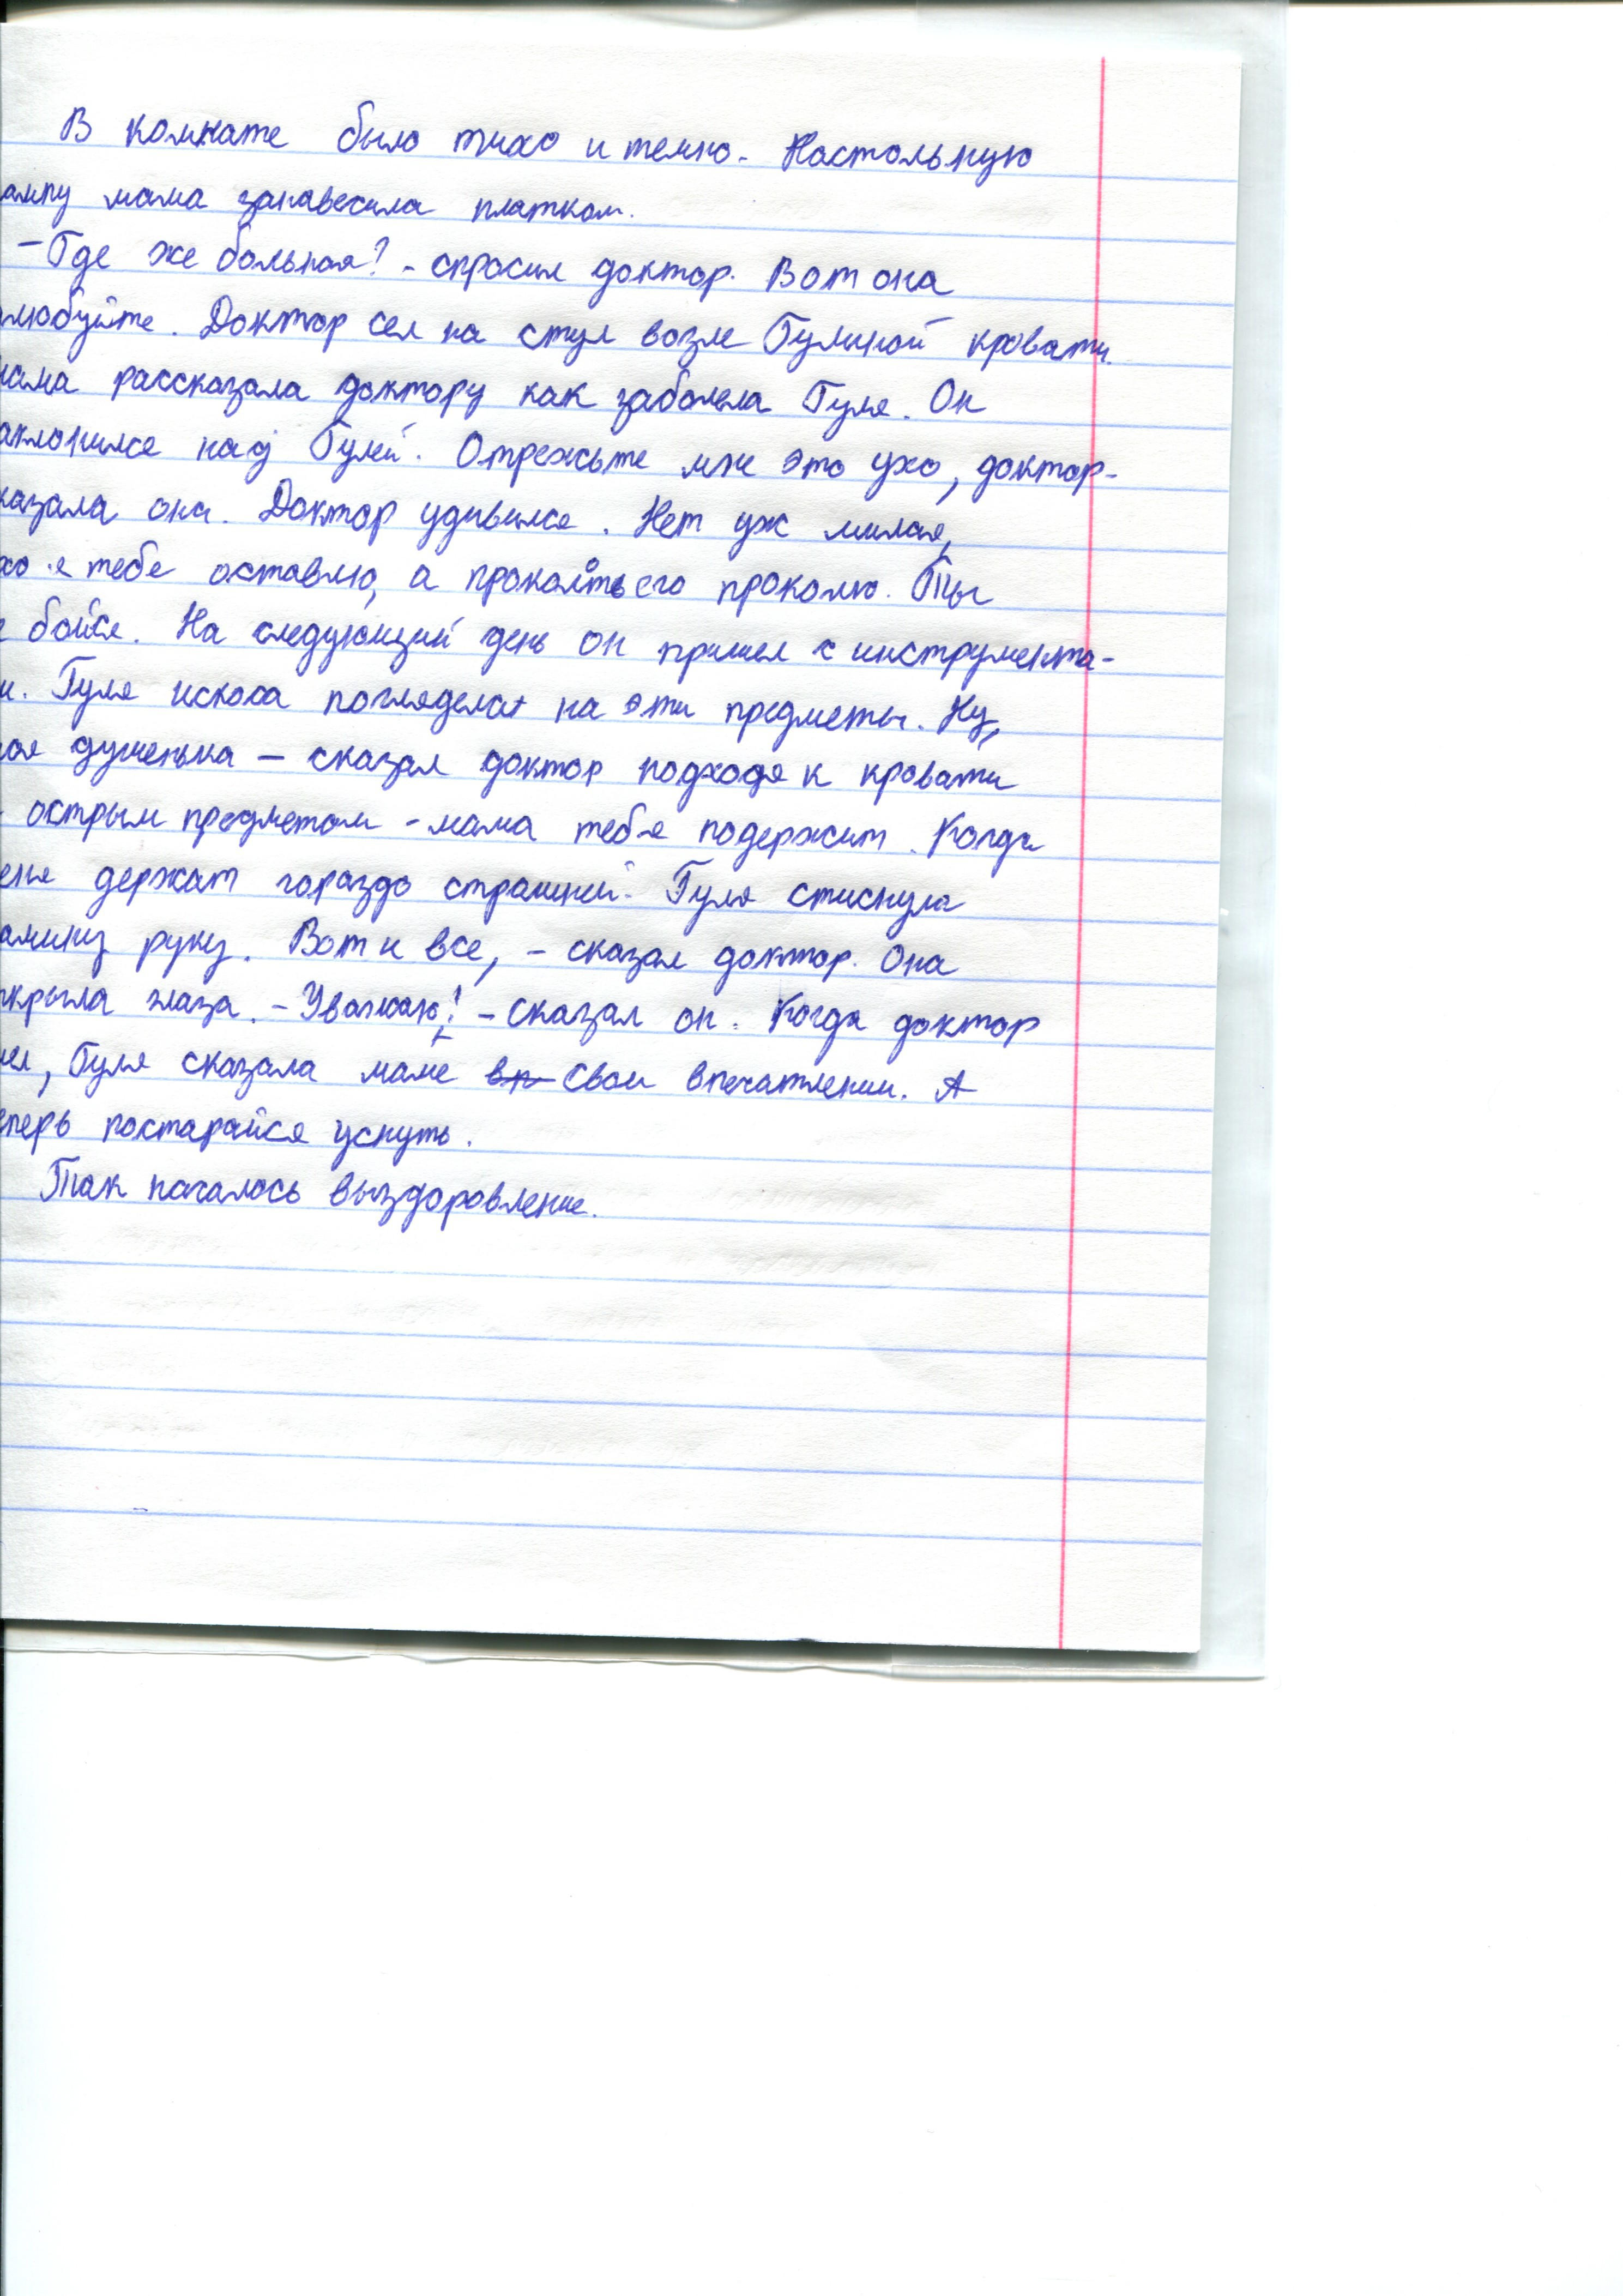 В комнате было тихо и темно. Настольную
ампу мама занавесила платком.
- Где же больная? - спросил доктор. Вот она
любуйте. Доктор сел на стул возле Гулиной кровати.
мама рассказала доктору как заболела Гуля. Он
аклонился над Гулей. Отрежьте мне это ухо, доктор -
казала она. Доктор удивился. Нет уж милая,
хо я тебе оставлю, а проколоть его проколю. Ты
е бойся. На следующий день он пришел с инструмента-
и. Гуля искоса поглядела на эти предметы. Ну,
оя душенька - сказал доктор подходя к кровати
с острым предметом - мама тебя подержит. Когда
еня держат гораздо страшней. Гуля стиснула
амину руку. Вот и все, - сказал доктор. Она
ткрыла глаза. - Уважаю! - сказал он. Когда доктор
шел, Гуля сказала маме вп свои впечатлении. А
еперь постарайся уснуть.
Так началось выздоровление.